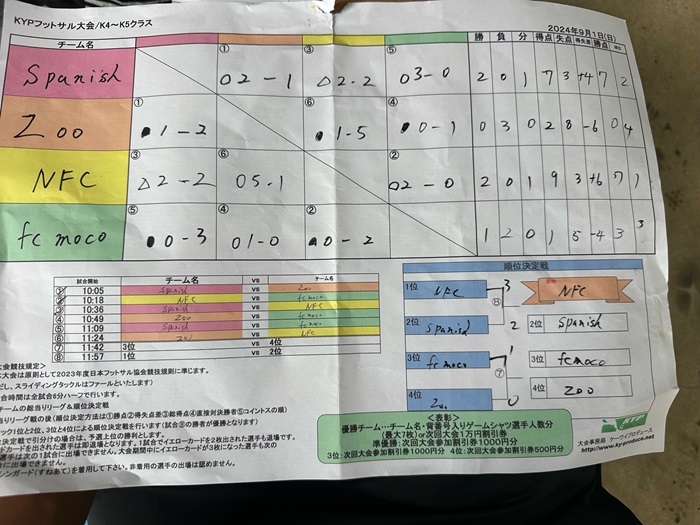 KYPフットサル大会/K4～K5クラス
2024年9月1日(日)
チーム名 ① ③ ⑤ 勝 負 分 得点 失点 得失差 勝点 順位
Spanish ○2-1 △2-2 ○3-0 2 0 1 7 3 +4 7 2
① ⑥ ④
Zoo ●1-2 ●1-5 ●0-1 0 3 0 2 8 -6 0 4
③ ⑥ ②
NFC △2-2 ○5-1 ○2-0 2 0 1 9 3 +6 7 1
⑤ ④ ②
fc moco ●0-3 ○1-0 ●0-2 1 2 0 1 5 -4 3 3
試合開始 チーム名 vs チーム名
① 10:05 Spanish vs Zoo
② 10:18 NFC vs fc moco
③ 10:36 Spanish vs NFC
④ 10:49 Zoo vs fc moco
⑤ 11:09 Spanish vs fc moco
⑥ 11:24 Zoo vs NFC
⑦ 11:42 3位 vs 4位
⑧ 11:57 1位 vs 2位
順位決定戦
1位 NFC 3 NFC
⑧
2位 Spanish 2 2位 Spanish
3位 fc moco 1 3位 fc moco
⑦
4位 Zoo 0 4位 ZOO
大会競技規定>
大会は原則として2023年度日本フットサル協会競技規則に準じます。
だし、スライディングタックルはファールといたします)
合時間は全試合6分ハーフで行います。
チームの総当りリーグ&順位決定戦
当りリーグ戦の後(順位決定方法は①勝点②得失点差③総得点④直接対決勝者⑤コイントスの順)
ック1位と2位、3位と4位による順位決定戦を行います(試合⑧の勝者が優勝となります)
決定戦で引分けの場合は、予選上位の勝利とします。
ドカードを出された選手は即退場となります。1試合でイエローカードを2枚出された選手も退場です。
選手は次の1試合に出場できません。大会期間中にイエローカードが3枚になった選手も次の
に出場できません。
シンガード(すねあて)を着用して下さい。非着用の選手の出場は認めません。
<表彰>
優勝チーム…チーム名・背番号入りゲームシャツ選手人数分
(最大7枚)or次回大会1万円割引券
準優勝:次回大会参加割引券1000円分
3位:次回大会参加割引券1000円分 4位:次回大会参加割引券500円分
KYP
大会事務局 ケーワイプロデュース
http://www.ky-produce.net